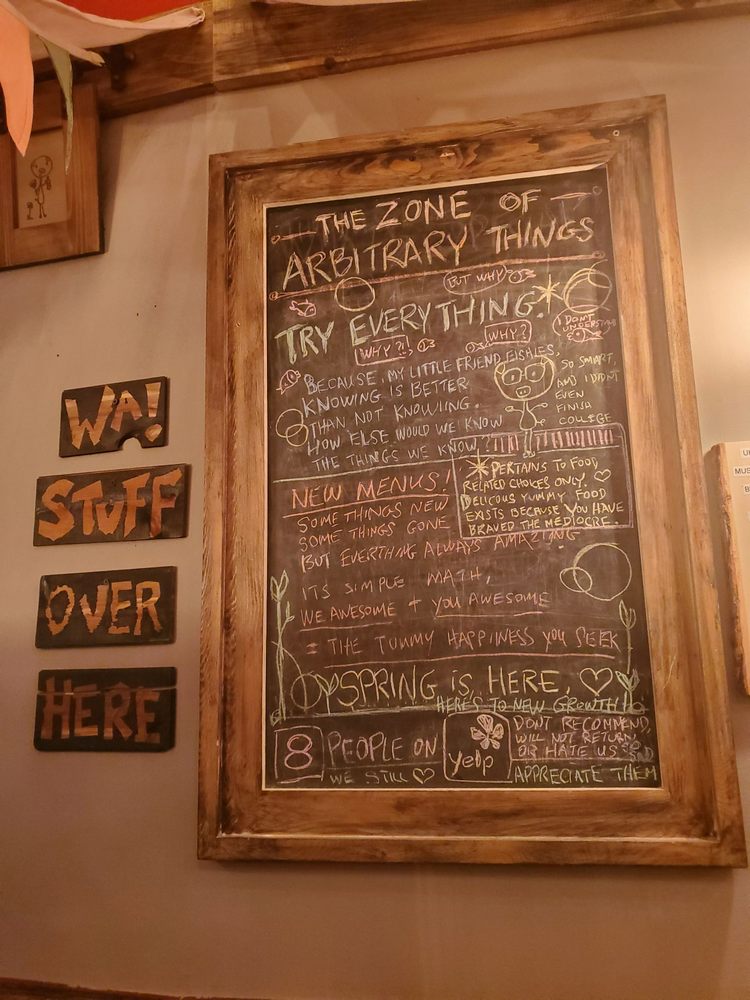 WA!
STUFF
OVER
HERE
THE ZONE OF
ARBITRARY THINGS
BUT WHY?
TRY EVERYTHING.*
WHY?!
WHY?
I DONT
UNDERSTAND
BECAUSE, MY LITTLE FRIEND FISHIES,
KNOWING IS BETTER
THAN NOT KNOWING.
HOW ELSE WOULD WE KNOW
THE THINGS WE KNOW?
SO SMART,
AND I DIDNT
EVEN
FINISH
COLLEGE
*PERTAINS TO FOOD
RELATED CHOICES ONLY. ♡
DELICIOUS YUMMY FOOD
EXISTS BECAUSE YOU HAVE
BRAVED THE MEDIOCRE.
NEW MENUS!
SOME THINGS NEW
SOME THINGS GONE
BUT EVERTHING ALWAYS AMAZING
ITS SIMPLE MATH,
WE AWESOME + YOU AWESOME
= THE TUMMY HAPPINESS YOU SEEK
SPRING IS HERE, ♡
HERES TO NEW GROWTH!
8 PEOPLE ON yelp
DONT RECOMMEND,
WILL NOT RETURN,
OR HATE US
SAD
WE STILL ♡
APPRECIATE THEM